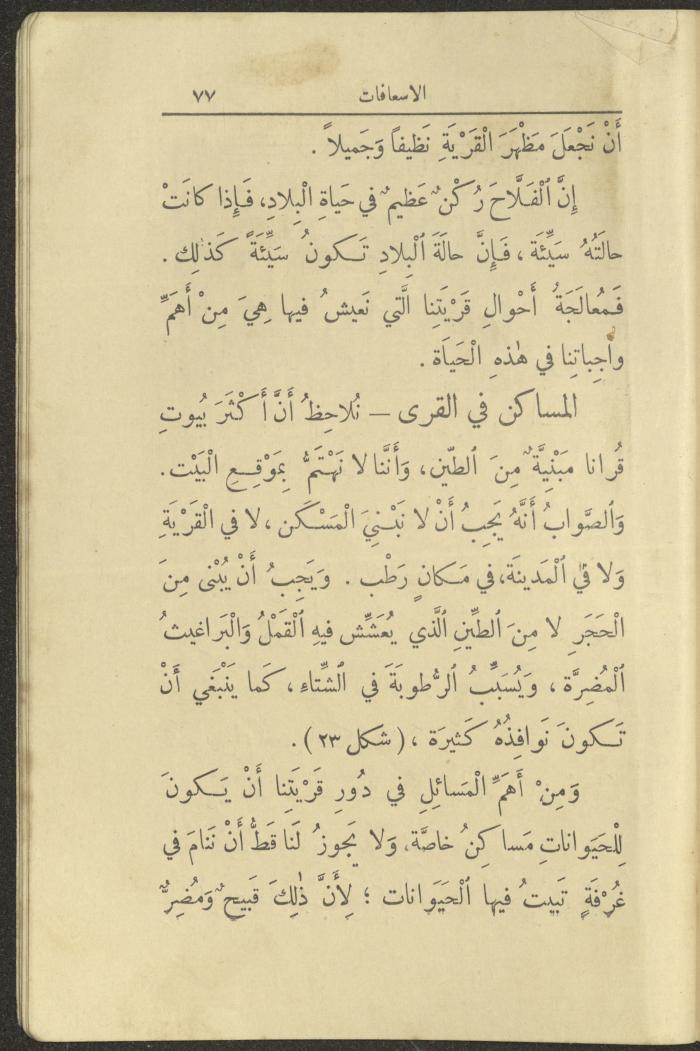 الاسعافات ٧٧
أَنْ نَجْعَلَ مَظْهَرَ الْقَرْيَةِ نَظيفاً وَجَميلاً .
إِنَّ ٱلْفَلَّاحَ رُكْنٌ عَظيمٌ في حَياةِ الْبِلادِ، فَإِذا كانَتْ
حالَتُهُ سَيِّئَة ، فَإِنَّ حالَةَ ٱلْبِلادِ تَكونُ سَيِّئَةً كَذٰلِك .
فَمُعالَجَةُ أَحْوالِ قَرْيَتِنا الَّتي نَعيشُ فيها هِيَ مِنْ أَهَمِّ
واجِباتِنا في هٰذهِ الْحَيَاة .
المساكن في القرى – نُلاحِظُ أَنَّ أَكْثَرَ بُيوتِ
قُرانا مَبْنِيَّةٌ مِنَ ٱلطّين، وَأَنَّنا لا نَهْتَمُّ بِمَوْقِعِ الْبَيْت.
وَٱلصَّوابُ أَنَّهُ يَجِبُ أَنْ لا نَبْنِيَ الْمَسْكَن، لا في الْقَرْيَةِ
وَلا في ٱلْمَدينَة، في مَكانٍ رَطْب . وَيَجِبُ أَنْ يُبْنى مِنَ
الْحَجَرِ لا مِنَ ٱلطِّينِ ٱلَّذي يُعَشِّش فيهِ ٱلْقَمْلُ وَالْبَراغيثُ
ٱلْمُضِرَّة ، وَيُسَبِّبُ ٱلرُّطوبَةَ في ٱلشِّتاءِ، كَما يَنْبَغي أَنْ
تَكونَ نَوافِذُهُ كَثيرَة ، (شكل ٢٣) .
وَمِنْ أَهَمِّ الْمَسائِلِ في دُورِ قَرْيَتِنا أَنْ يَكونَ
لِلْحَيَواناتِ مَساكِنُ خاصَّة، وَلا يَجوزُ لَنا قَطُّ أَنْ نَنامَ في
غُرْفَةٍ تَبيتُ فيها ٱلْحَيَوَانات ؛ لِأَنَّ ذٰلِكَ قَبيحٌ وَمُضِرٌّ